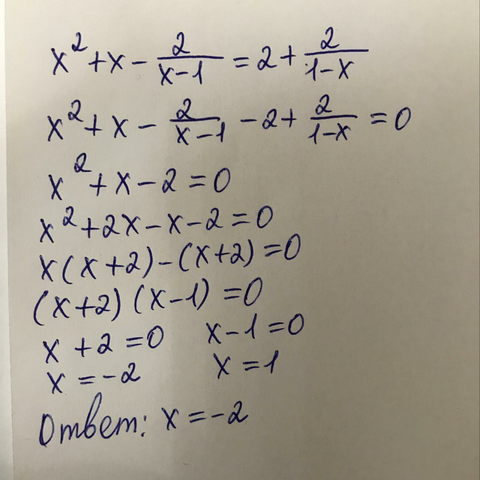 x² + x - 2/(x-1) = 2 + 2/(1-x)
x² + x - 2/(x-1) - 2 + 2/(1-x) = 0
x² + x - 2 = 0
x² + 2x - x - 2 = 0
x(x+2) - (x+2) = 0
(x+2)(x-1) = 0
x + 2 = 0 x - 1 = 0
x = -2 x = 1
Ответ: x = -2